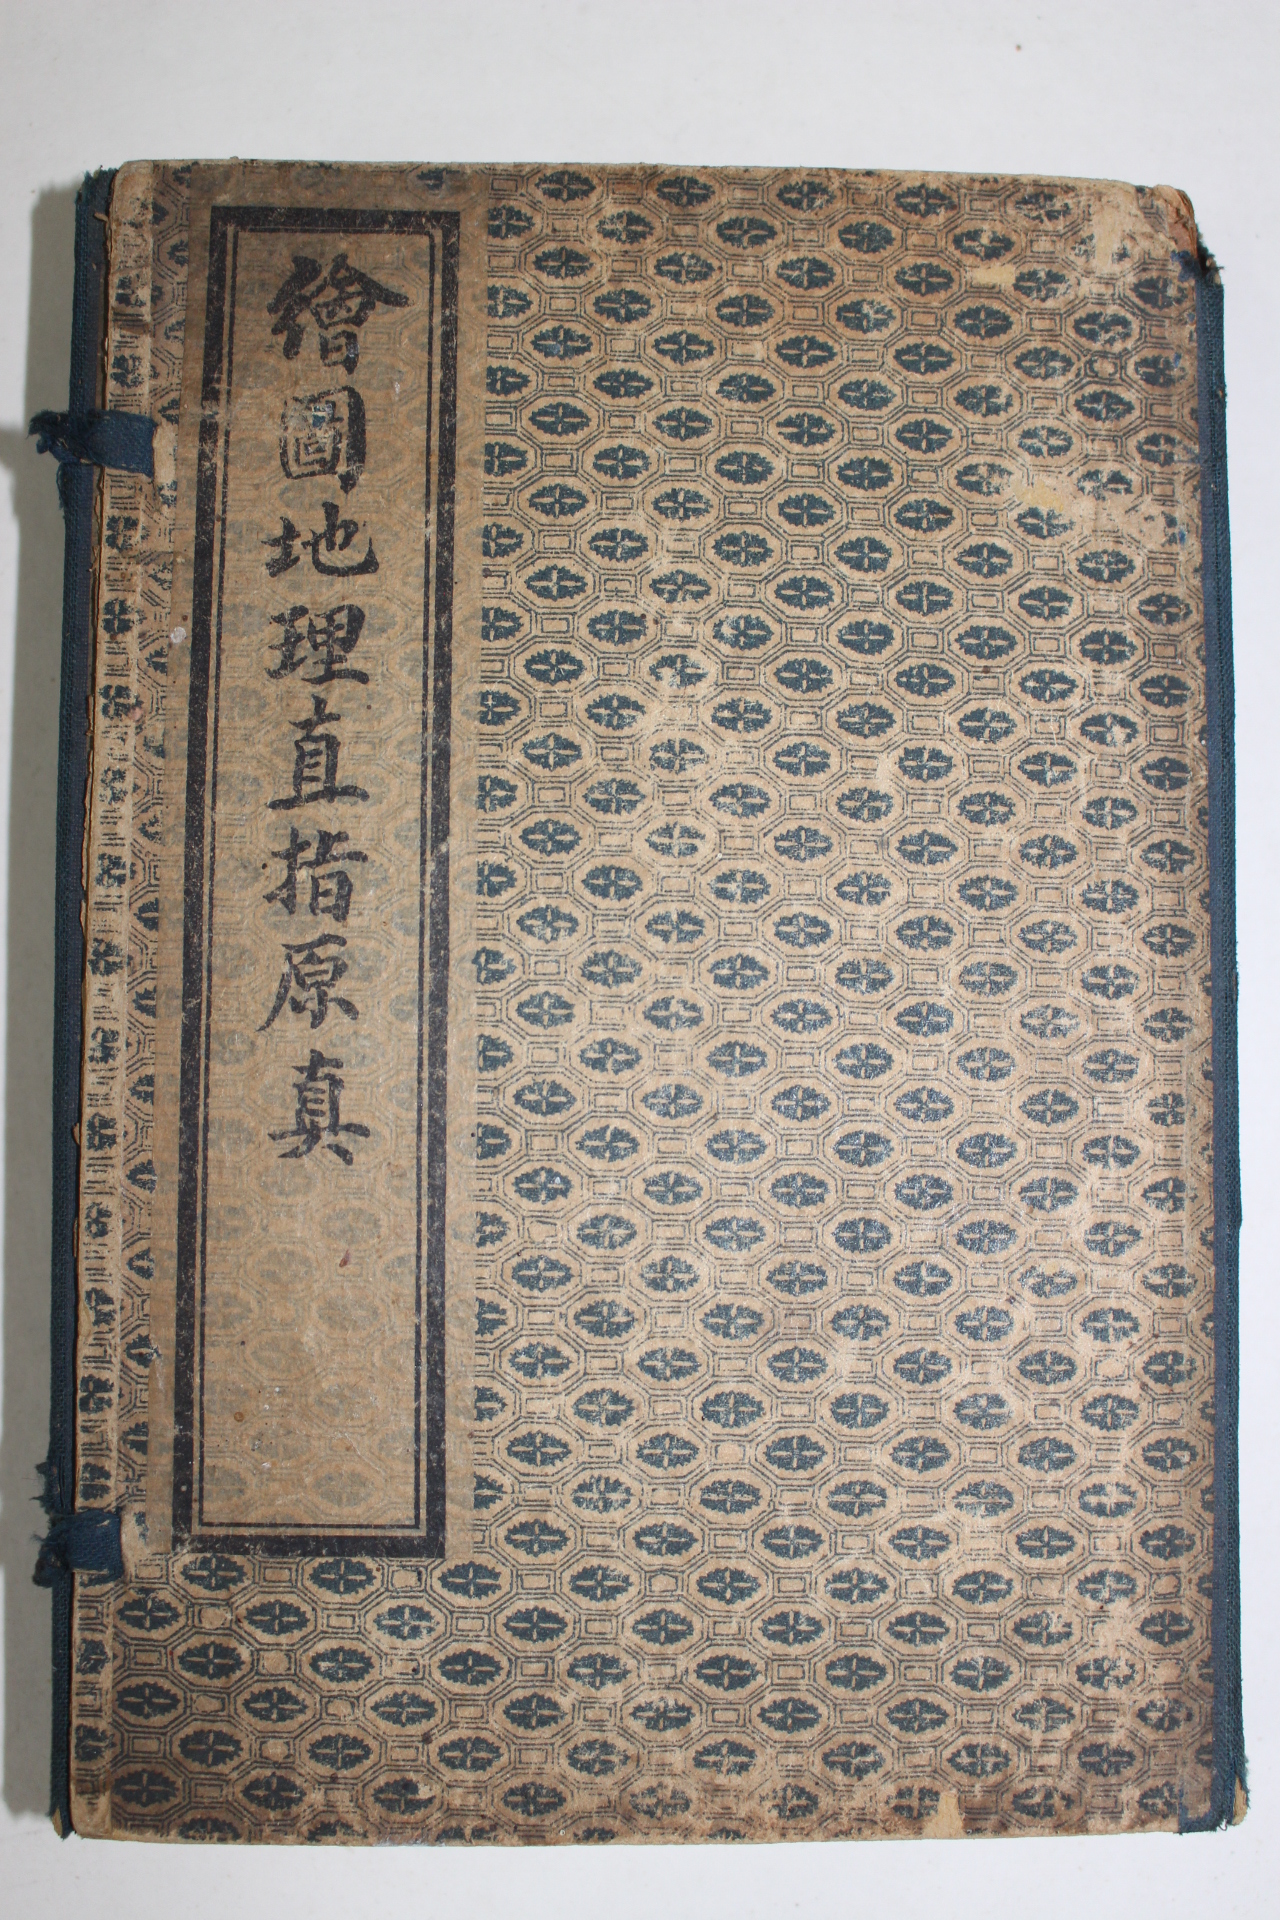 繪圖地理直指原真